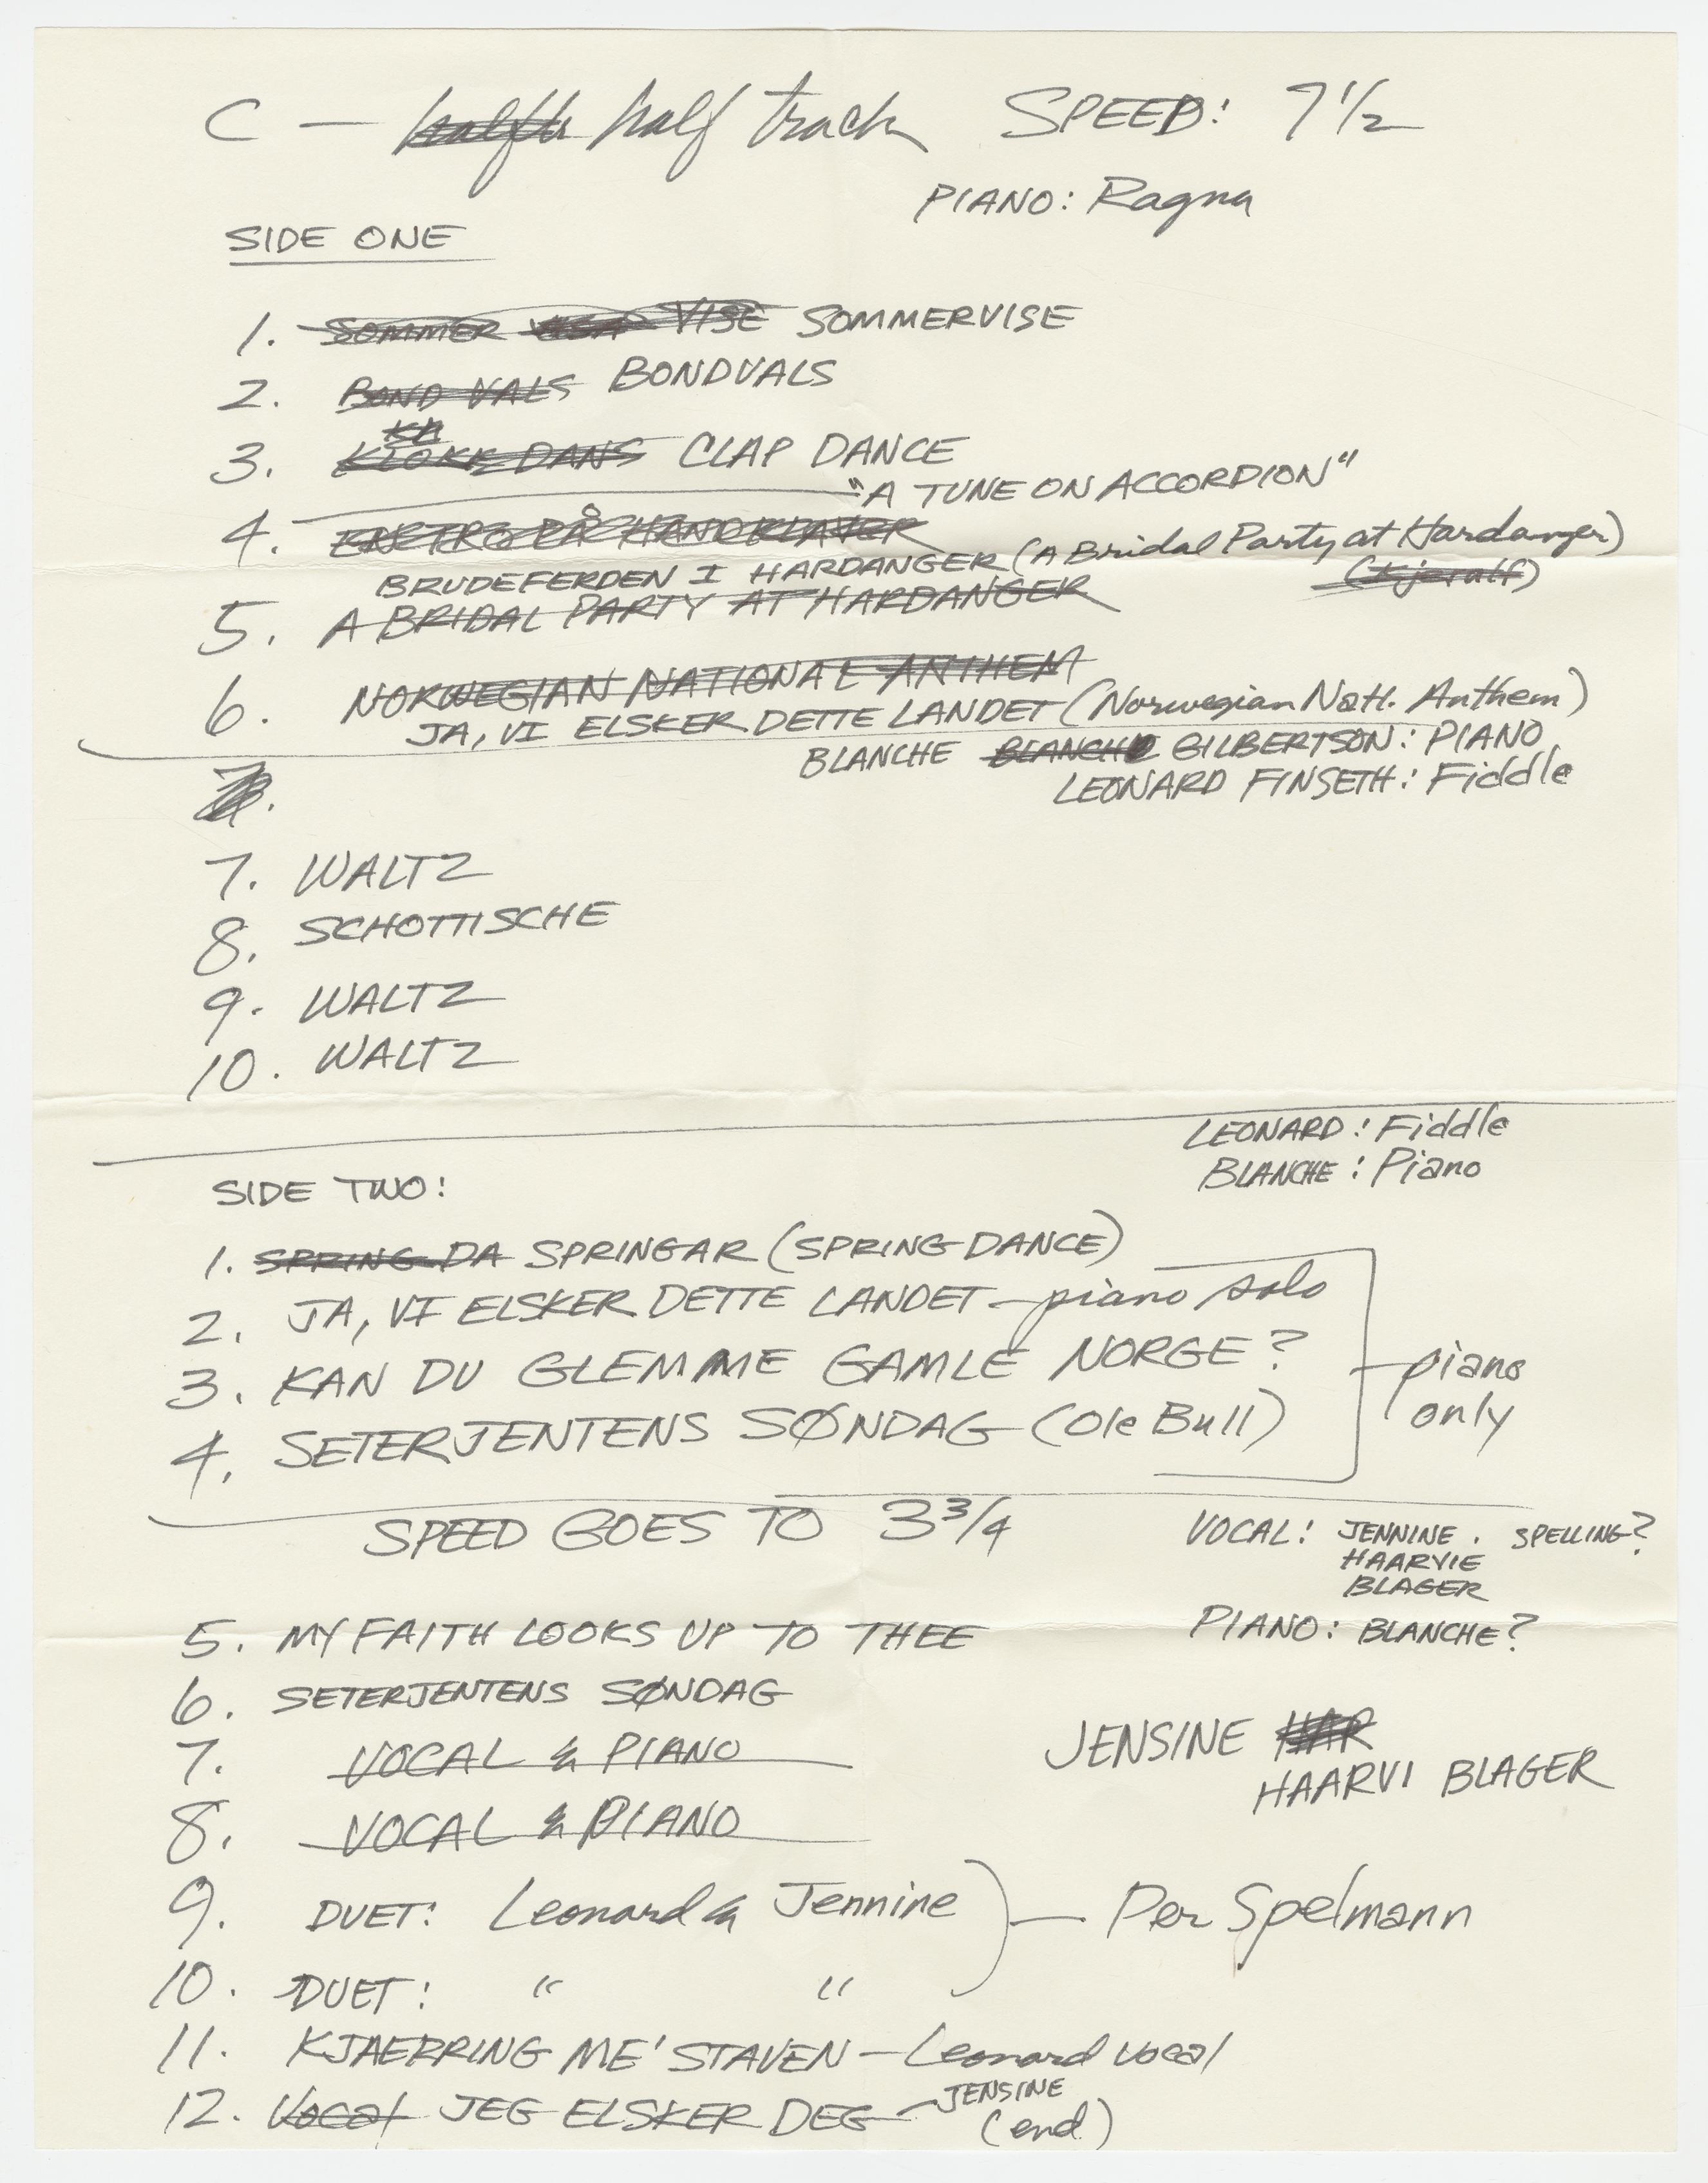 C — half track SPEED: 7 1/2
PIANO: Ragna
SIDE ONE
1. SOMMER VISE SOMMERVISE
2. BOND VALS BONDVALS
3. KLOKK DANS CLAP DANCE
"A TUNE ON ACCORDION"
4.
BRUDEFERDEN I HARDANGER (A Bridal Party at Hardanger)
5. A BRIDAL PARTY AT HARDANGER
6. NORWEGIAN NATIONAL ANTHEM
JA, VI ELSKER DETTE LANDET (Norwegian Natl. Anthem)
BLANCHE BLANCHE GILBERTSON: PIANO
LEONARD FINSETH: Fiddle
7. WALTZ
8. SCHOTTISCHE
9. WALTZ
10. WALTZ
LEONARD: Fiddle
BLANCHE: Piano
SIDE TWO:
1. SPRING DA SPRINGAR (SPRING DANCE)
2. JA, VI ELSKER DETTE LANDET — piano solo
3. KAN DU GLEMME GAMLE NORGE?
4. SETERJENTENS SØNDAG (Ole Bull)
piano
only
SPEED GOES TO 3 3/4
VOCAL: JENNINE. SPELLING?
HAARVIE
BLAGER
PIANO: BLANCHE?
5. MY FAITH LOOKS UP TO THEE
6. SETERJENTENS SØNDAG
7. VOCAL & PIANO
JENSINE HAR
HAARVI BLAGER
8. VOCAL & PIANO
9. DUET: Leonard & Jennine ) — Per Spelmann
10. DUET: " "
11. KJAERRING ME' STAVEN — Leonard vocal
12. Vocal JEG ELSKER DEG — JENSINE
(end)